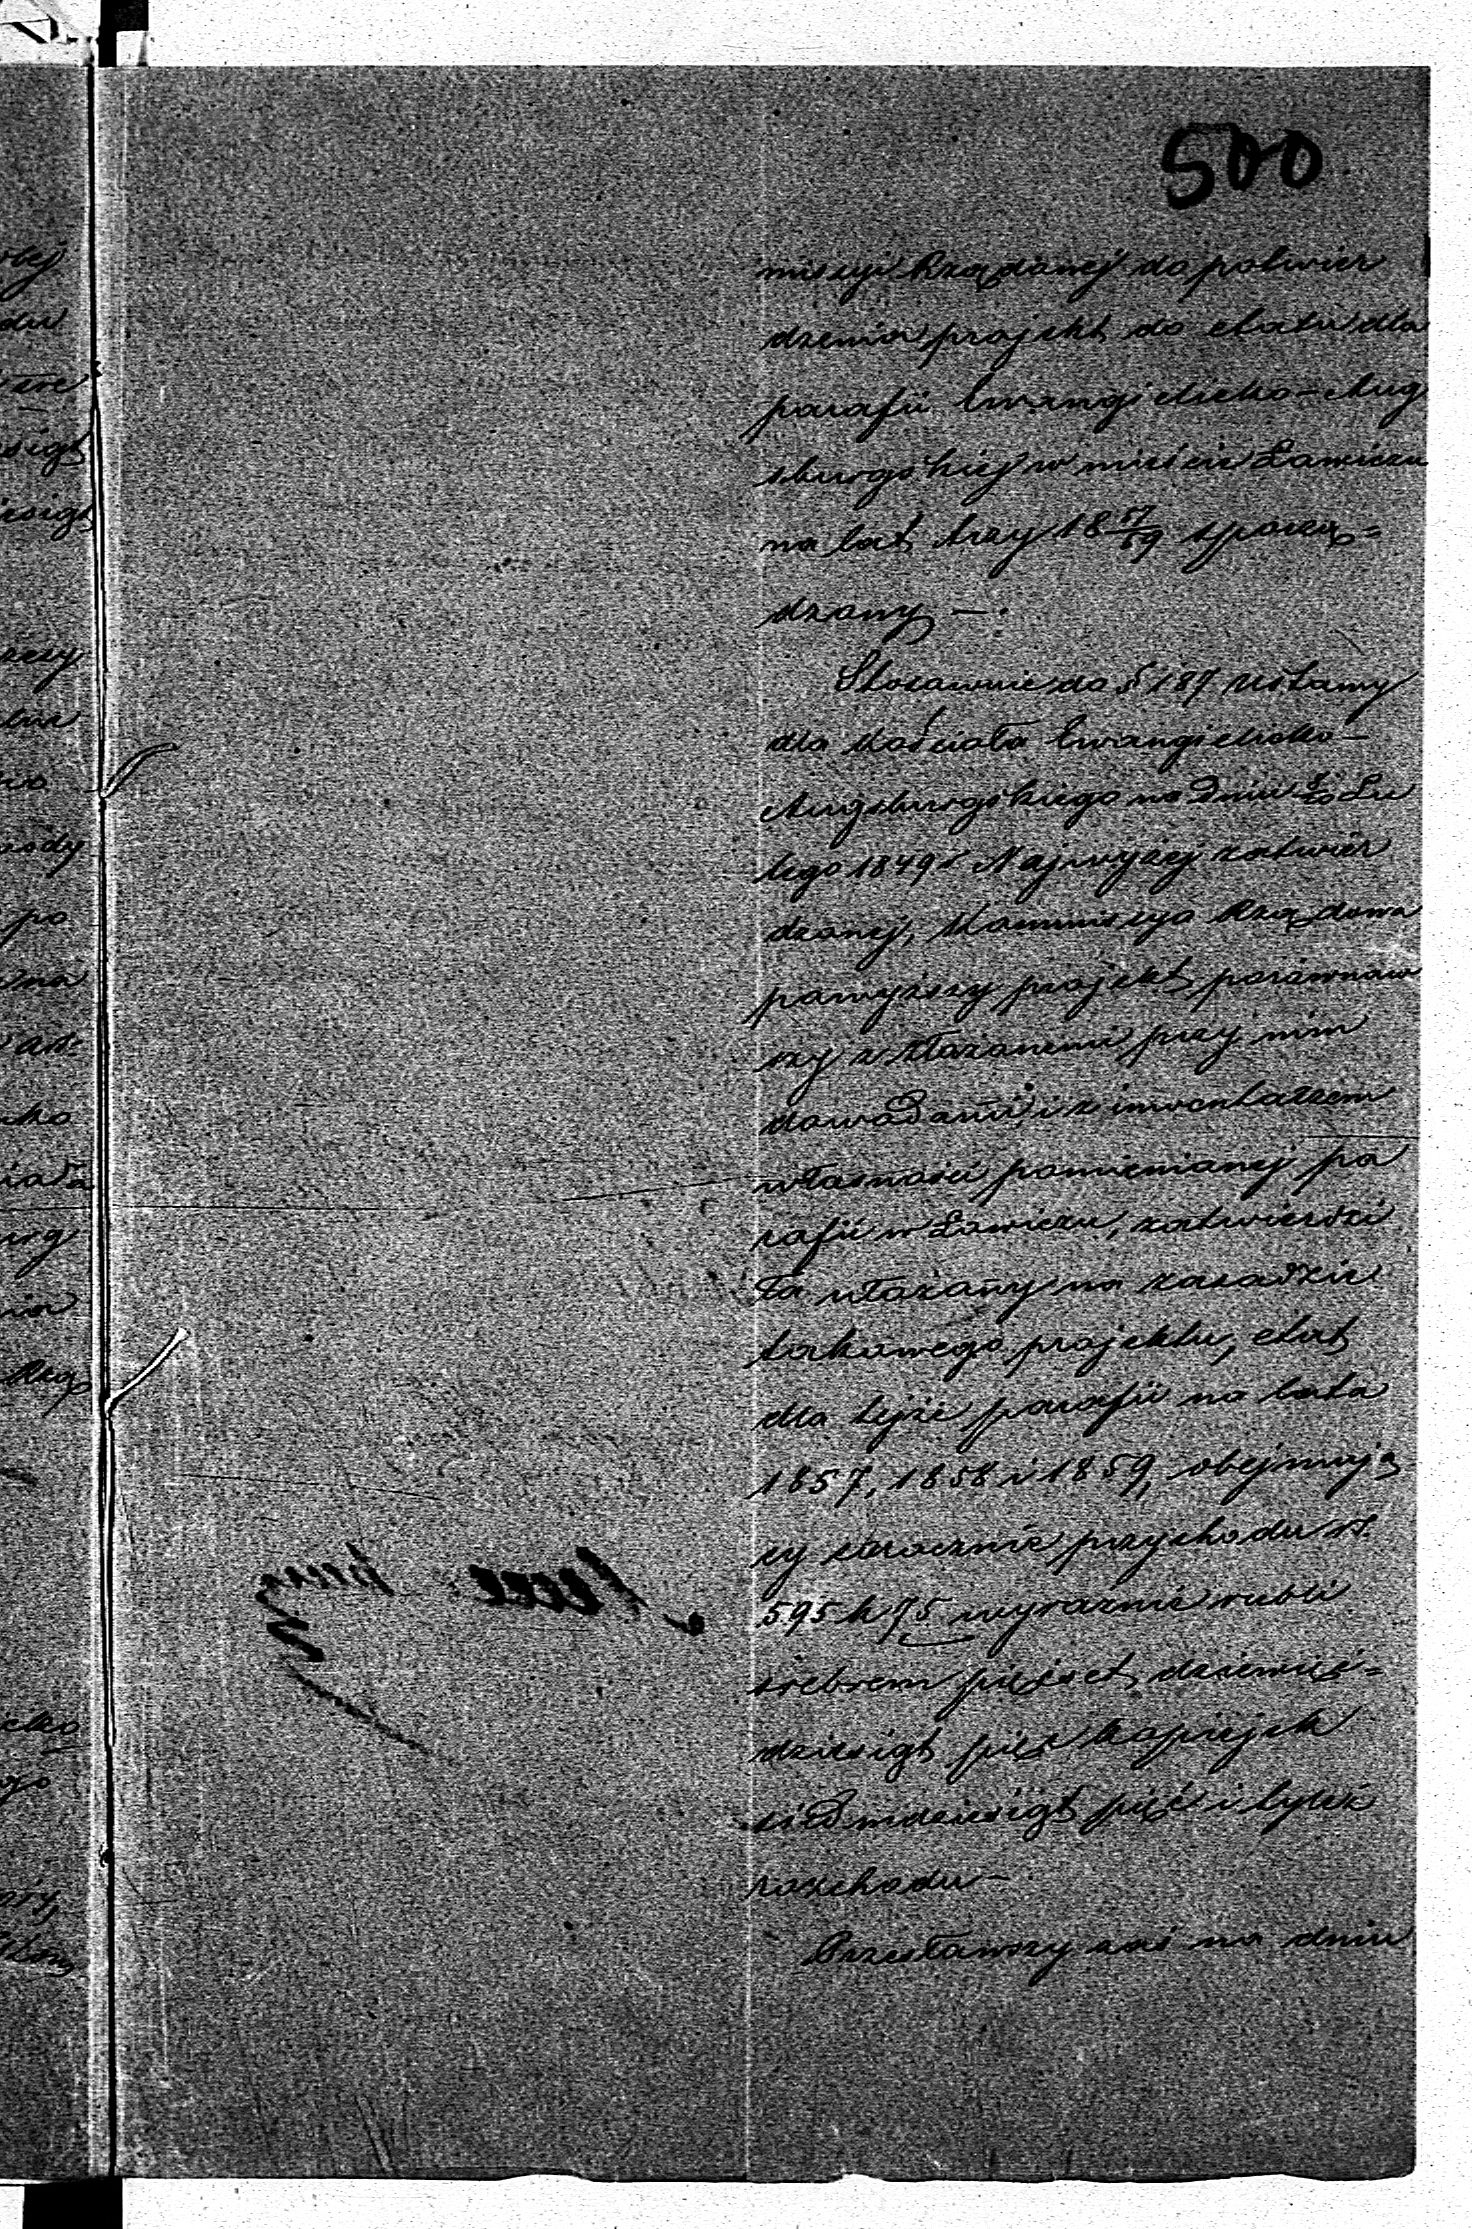 500
missyi Rządowej do potwier
dzenia projekt do etatu dla
parafii Ewangielicko-Aug
sburgskiej w mieście Łowiczu
na lat trzy 18 57/59 sporzą=
dzony —.
Stosownie do § 187 Ustawy
dla Kościoła Ewangielicko—
Augsburgskiego na dniu 8/20 Lu
tego 1849 r Najwyżej zatwier
dzonej, Kommissya Rządowa
powyższy projekt, porównaw
szy z złożonemi przy nim
dowodami, i z inwentarzem
własności pomienionej pa
rafii w Łowiczu, zatwierdzi
ła ułożony na zasadzie
takowego projektu, etat
dla tejże parafii na lata
1857, 1858 i 1859, obejmują
cy corocznie przychodu rs.
595 k 75 wyraźnie rubli
srebrem pięćset dziewięć=
dziesiąt pięć kopiejek
siedmdziesiąt pięć i tyleż
rozchodu—
Przesławszy zaś na dniu